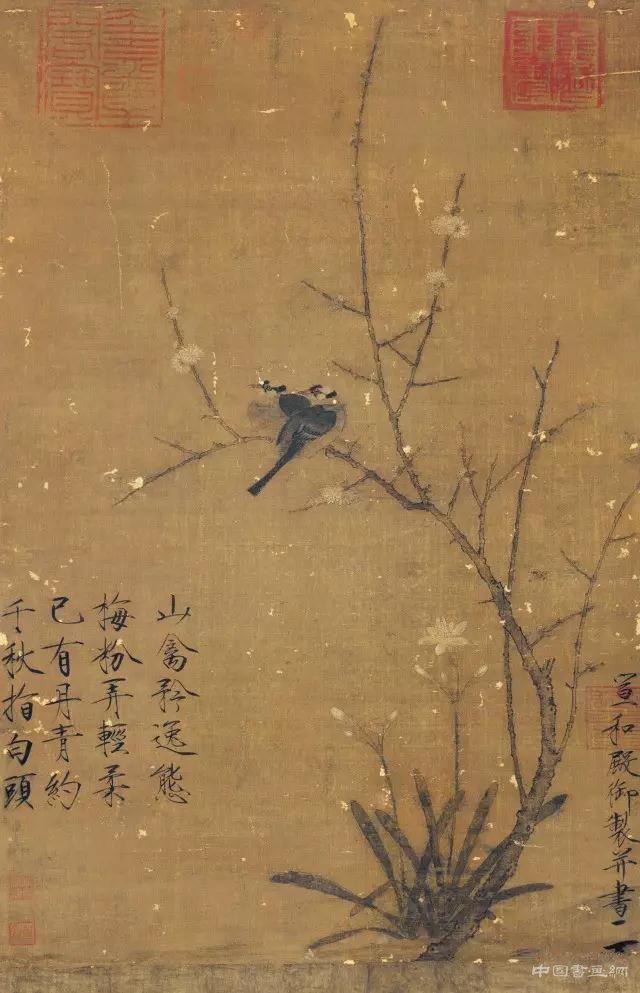 宣和殿御製并書
山禽矜逸態
梅粉弄輕柔
已有丹青約
千秋指白頭
中国書画網